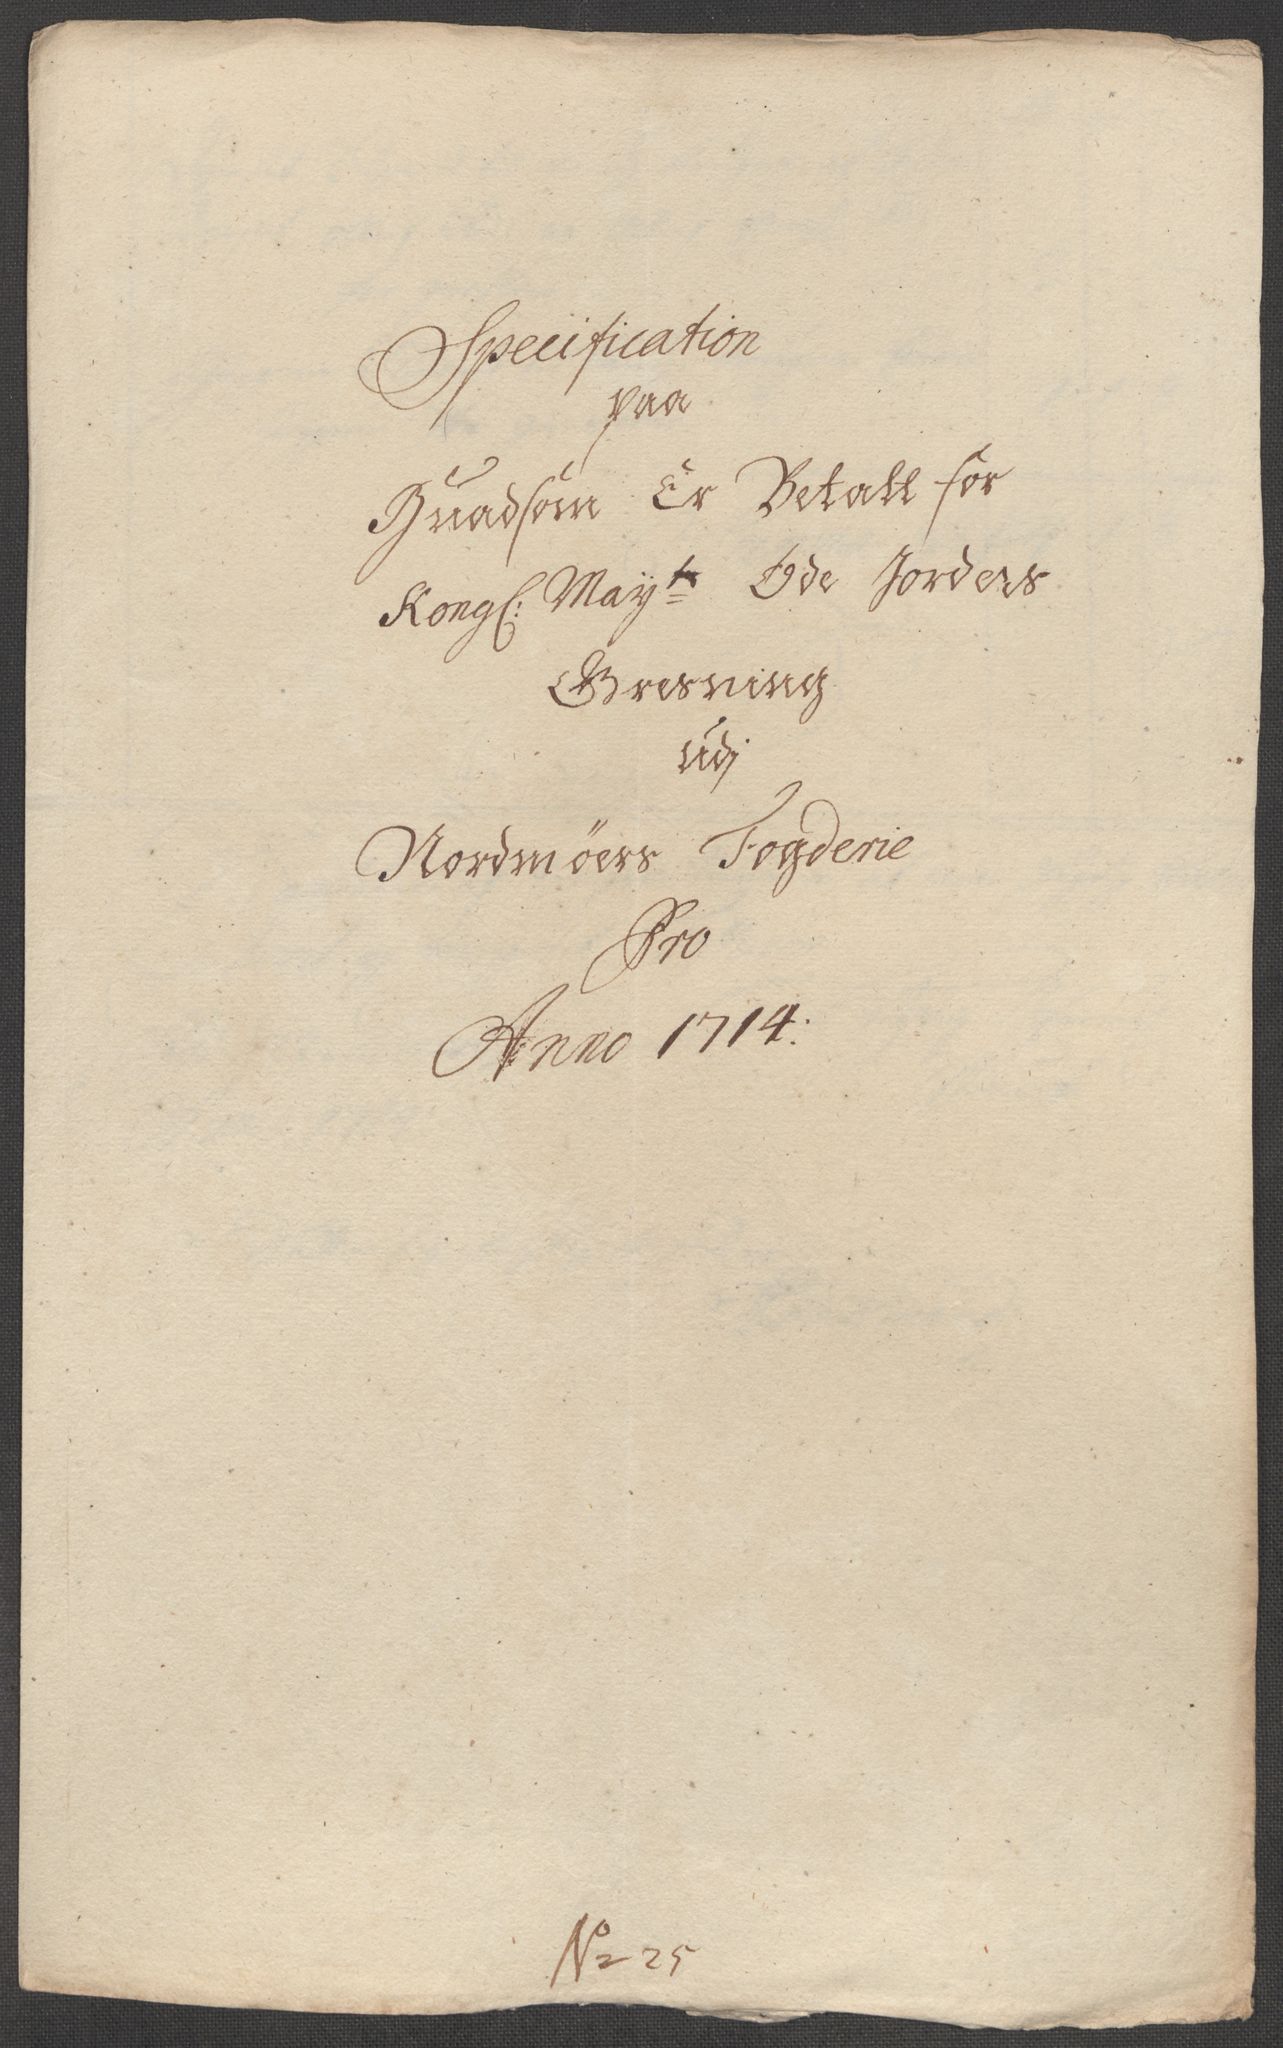 Specification
paa
Huadsom Er Betalt for
Kongl: Mayts Øde Jorders
Græsning
udj
Nordmöers Fogderie
Pro
Anno 1714:
No 25